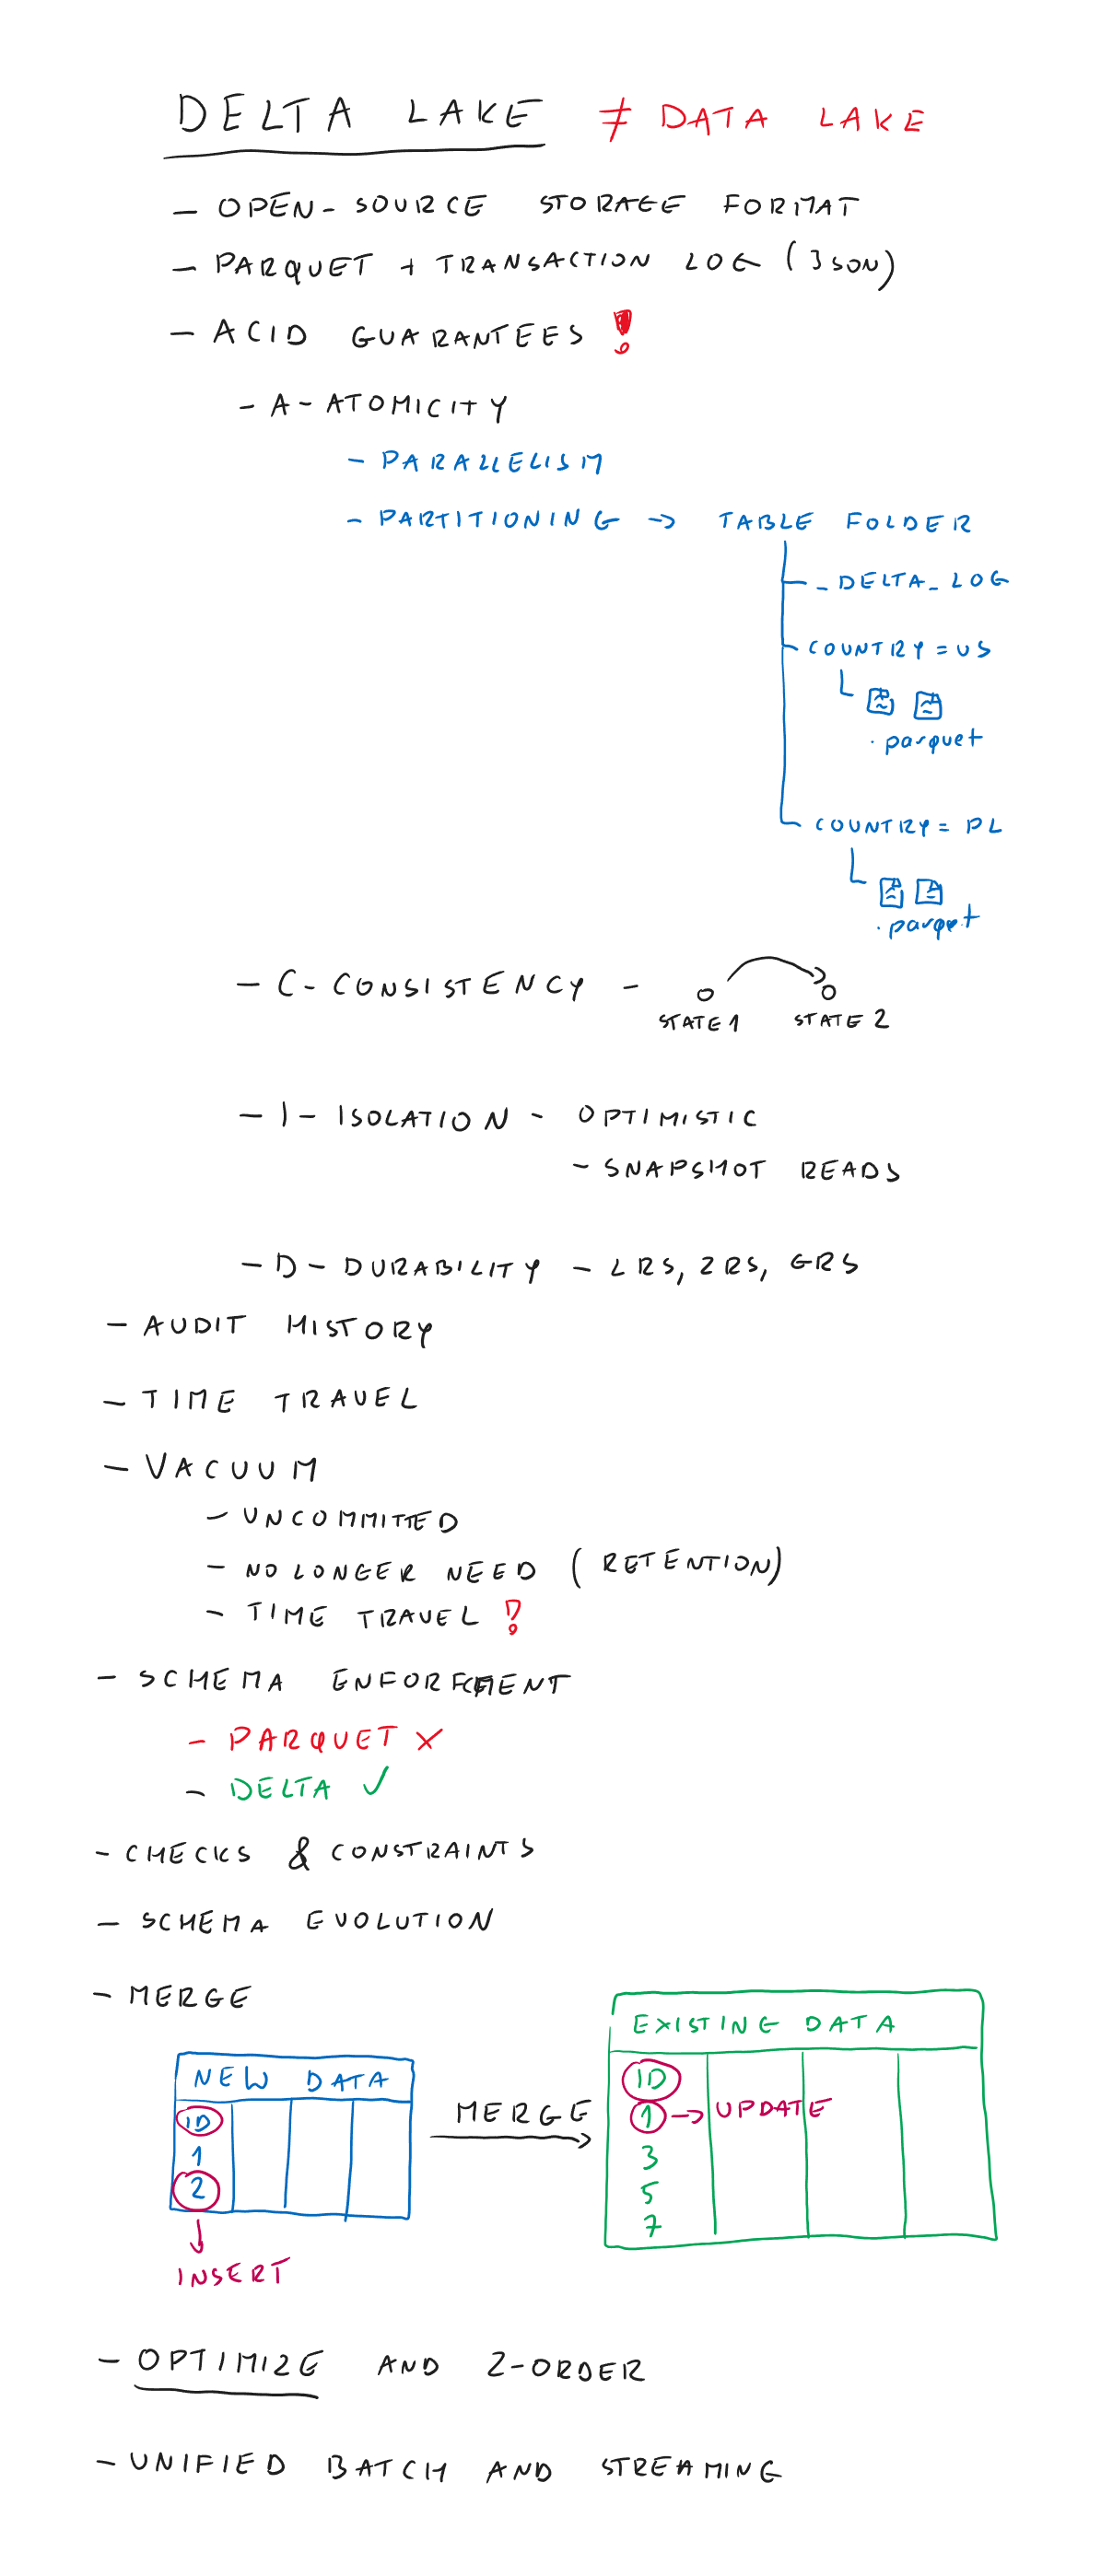 DELTA LAKE ≠ DATA LAKE
- OPEN-SOURCE STORAGE FORMAT
- PARQUET + TRANSACTION LOG (JSON)
- ACID GUARANTEES !
- A - ATOMICITY
- PARALLELISM
- PARTITIONING → TABLE FOLDER
_DELTA_LOG
COUNTRY=US
.parquet
COUNTRY=PL
.parquet
- C - CONSISTENCY -
STATE 1 STATE 2
- I - ISOLATION - OPTIMISTIC
- SNAPSHOT READS
- D - DURABILITY - LRS, ZRS, GRS
- AUDIT HISTORY
- TIME TRAVEL
- VACUUM
- UNCOMMITTED
- NO LONGER NEED (RETENTION)
- TIME TRAVEL !
- SCHEMA ENFORCEMENT
- PARQUET ×
- DELTA ✓
- CHECKS & CONSTRAINTS
- SCHEMA EVOLUTION
- MERGE
NEW DATA
ID
1
2
INSERT
MERGE
EXISTING DATA
ID
1 → UPDATE
3
5
7
- OPTIMIZE AND Z-ORDER
- UNIFIED BATCH AND STREAMING